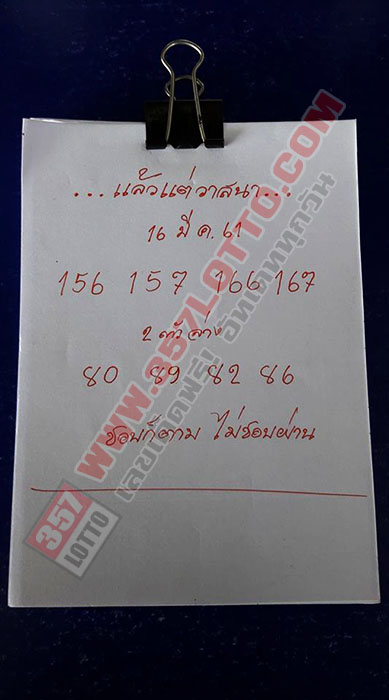 ...แล้วแต่วาสนา...
16 มี ค. 61
156 157 166 167
2 ตัวล่าง
80 89 82 86
ชอบก็ตาม ไม่ชอบผ่าน
WWW.357LOTTO.COM
เลขเด็ดฟรี! อัพเดททุกวัน
357
LOTTO